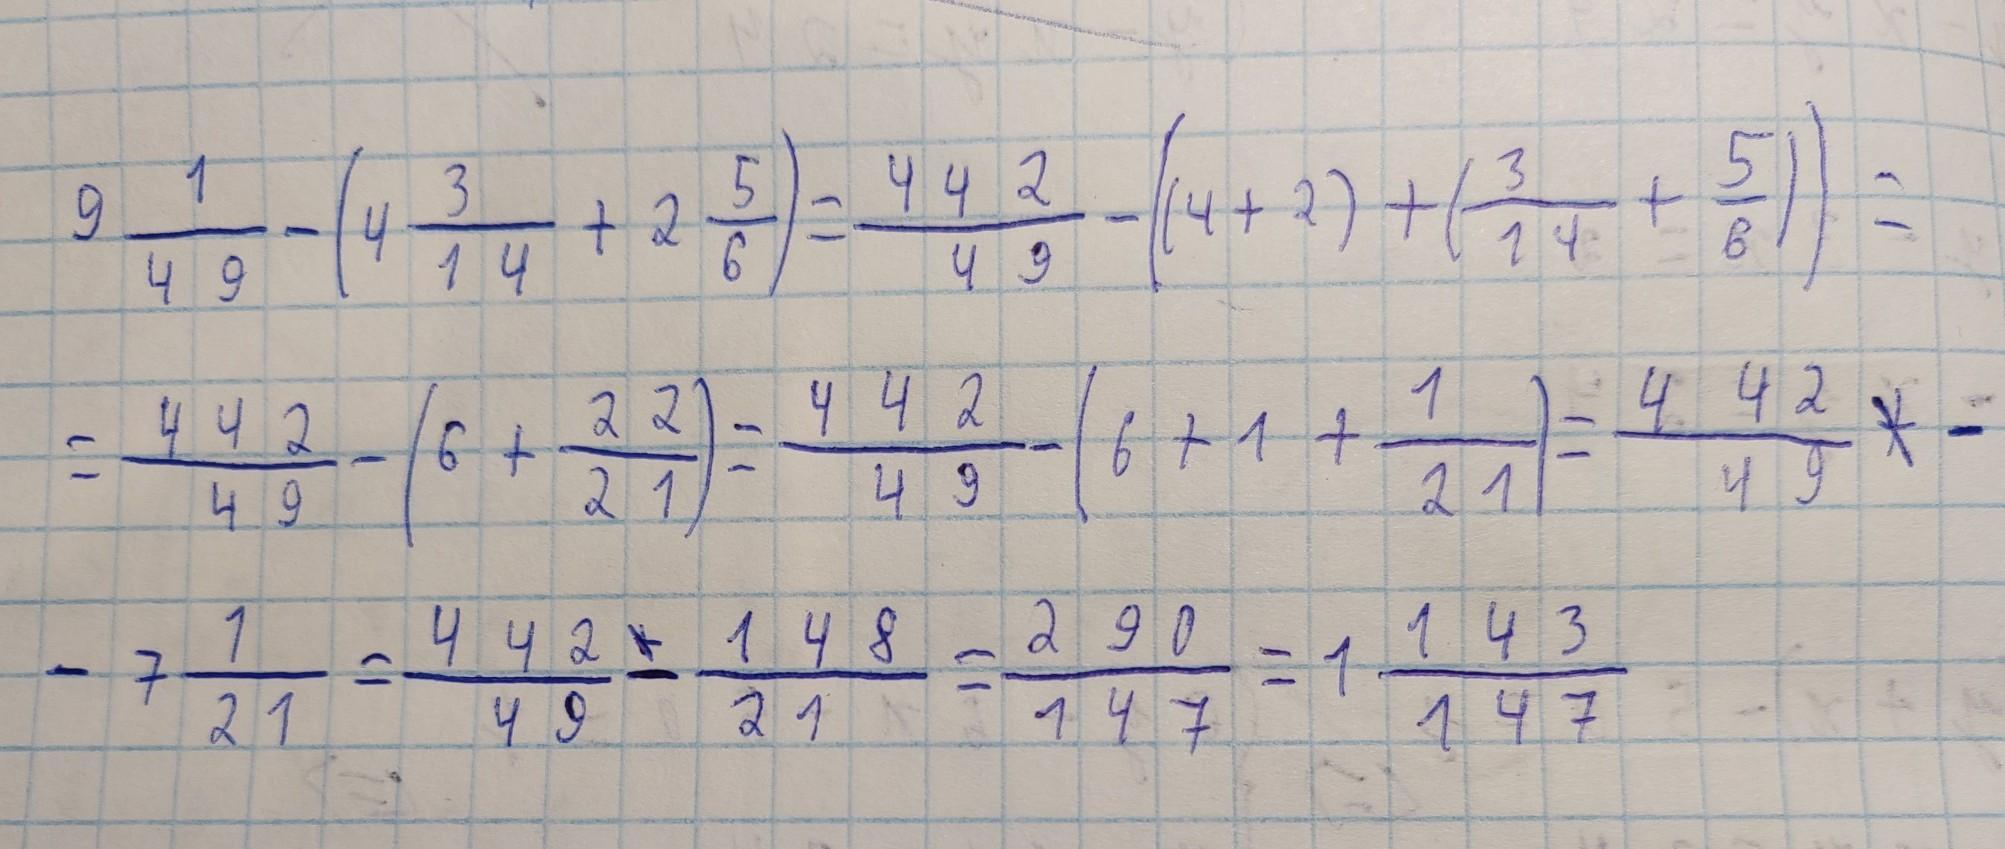 9 1/49 - (4 3/14 + 2 5/6) = 442/49 - ((4 + 2) + (3/14 + 5/6)) =
= 442/49 - (6 + 22/21) = 442/49 - (6 + 1 + 1/21) = 442/49 -
- 7 1/21 = 442/49 - 148/21 = 290/147 = 1 143/147